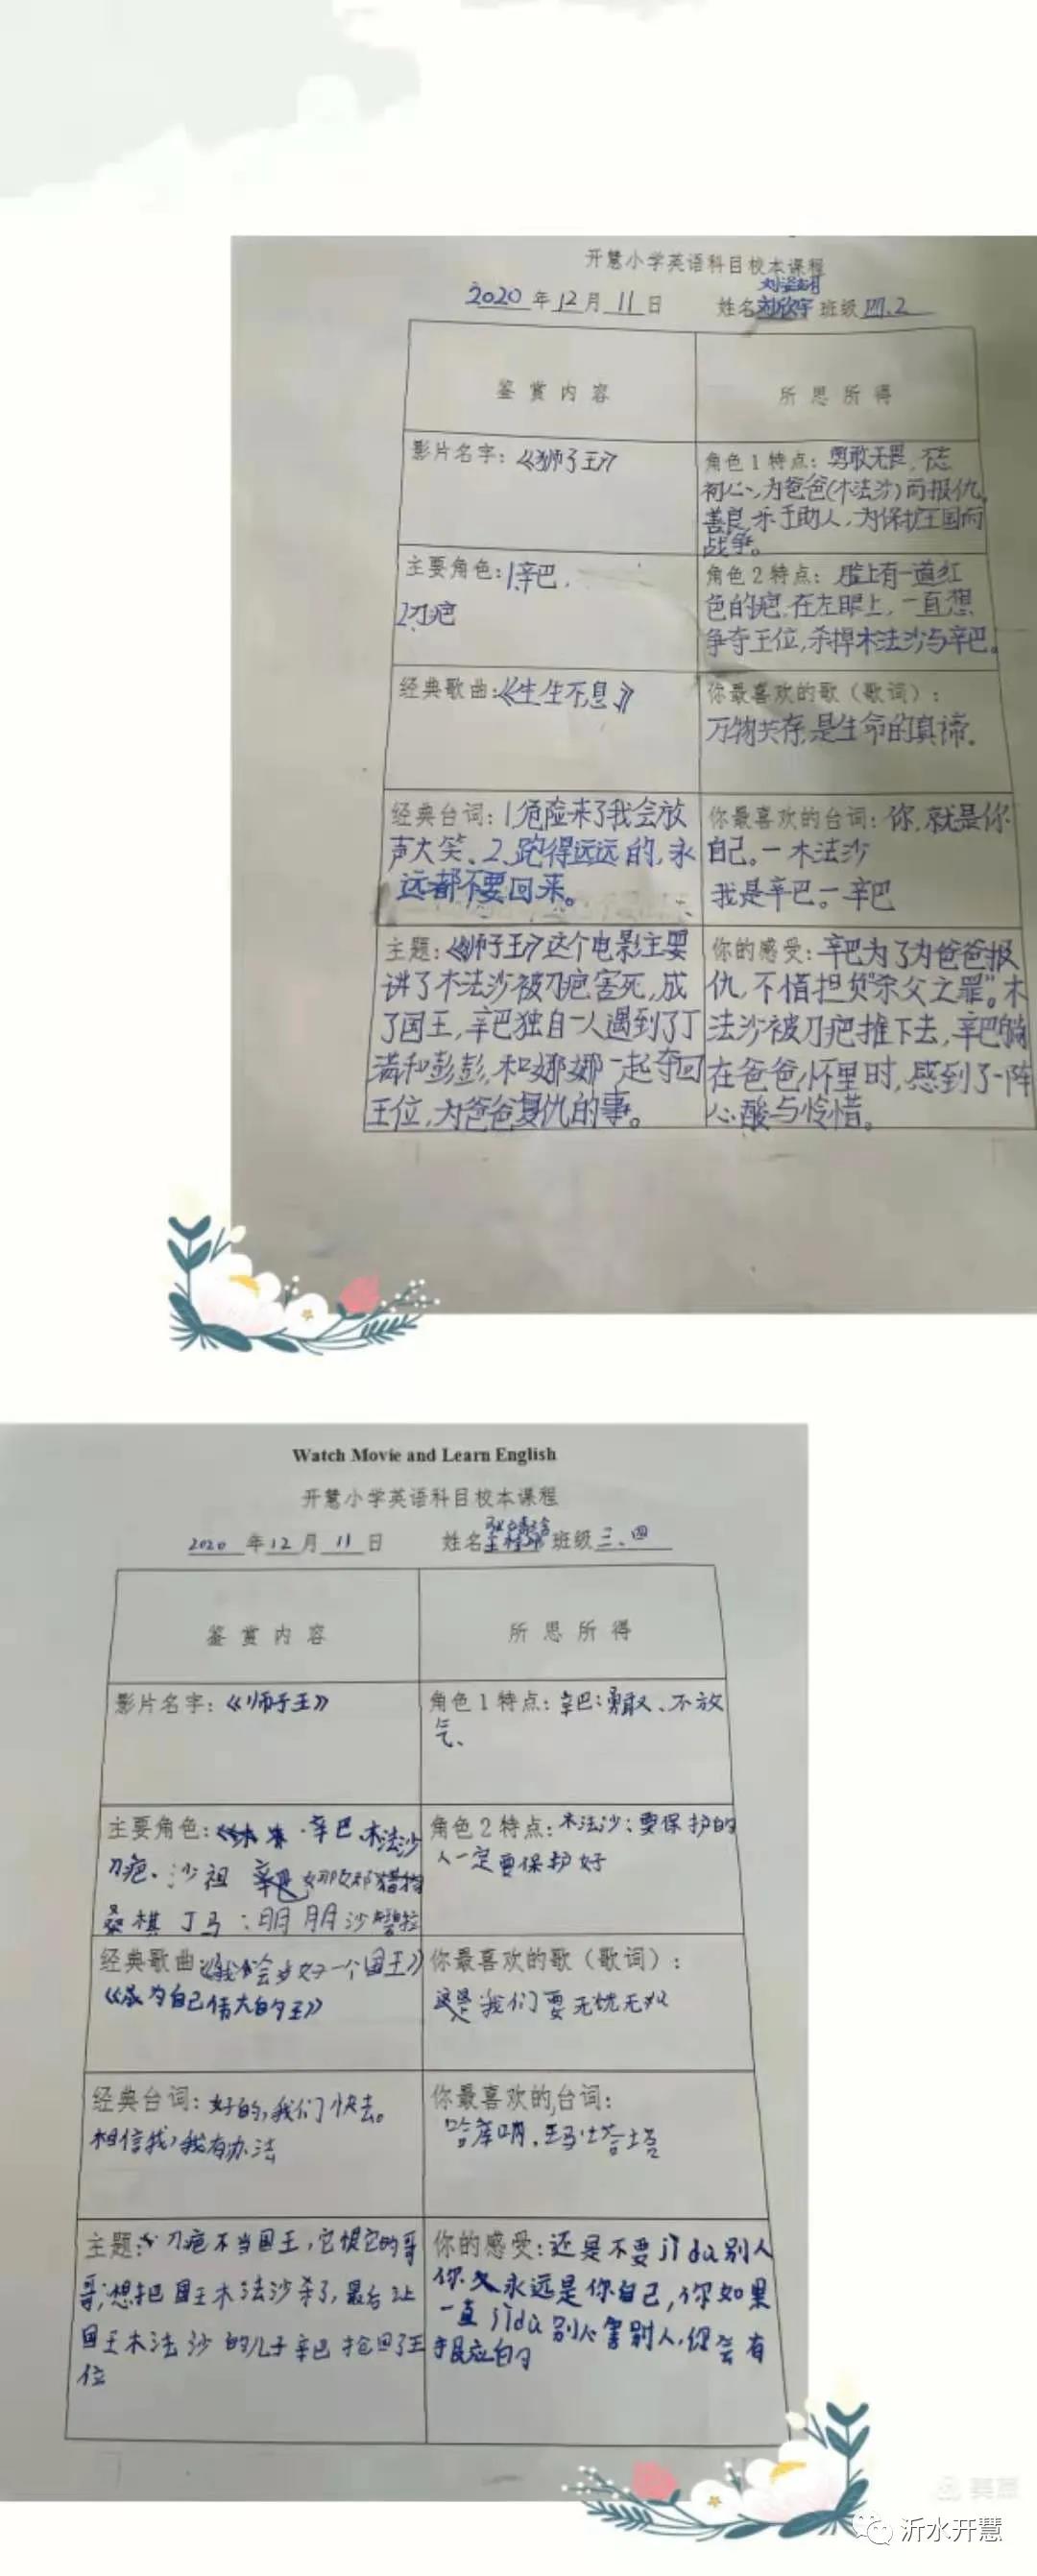 开慧小学英语科目校本课程
2020 年 12 月 11 日 姓名 刘欣宇 班级 四.2
鉴赏内容 所思所得
影片名字：《狮子王》
角色1特点：勇敢无畏，不忘
初心，为爸爸(木法沙)而报仇，
善良，乐于助人，为保护王国而
战争。
主要角色：1.辛巴，
2.刀疤
角色2特点：脸上有一道红
色的疤，在左眼上，一直想
争夺王位，杀掉木法沙与辛巴。
经典歌曲：《生生不息》
你最喜欢的歌（歌词）：
万物共存，是生命的真谛。
经典台词：1.危险来了我会放
声大笑、2、跑得远远的，永
远都不要回来。
你最喜欢的台词：你，就是你
自己。—木法沙
我是辛巴。—辛巴
主题：《狮子王》这个电影主要
讲了木法沙被刀疤害死，成
了国王，辛巴独自一人遇到了丁
满和彭彭，和娜娜一起夺回
王位，为爸爸复仇的事。
你的感受：辛巴为了为爸爸报
仇，不惜担负“杀父之罪”。木
法沙被刀疤推下去，辛巴躺
在爸爸怀里时，感到了一阵
心酸与怜惜。
Watch Movie and Learn English
开慧小学英语科目校本课程
2020 年 12 月 11 日 姓名 班级 三.四
鉴赏内容 所思所得
影片名字：《师子王》
角色1特点：辛巴：勇敢、不放
气、
主要角色： 辛巴、木法沙
刀疤、沙祖
桑棋 丁马
角色2特点：木法沙：要保护的
人一定要保护好
经典歌曲《我会当好一个国王》
《成为自己伟大的王》
你最喜欢的歌（歌词）：
我们要无忧无
经典台词：好的，我们快去。
相信我，我有办法
你最喜欢的台词：
哈库呐、玛塔塔
主题：刀疤不当国王，它恨它的哥
哥，想把国王木法沙杀了，最后让
国王木法沙的儿子辛巴抢回了王
位
你的感受：还是不要jì dù别人
你永远是你自己，你如果
一直jì dù别人害别人，你会有
报应的
沂水开慧